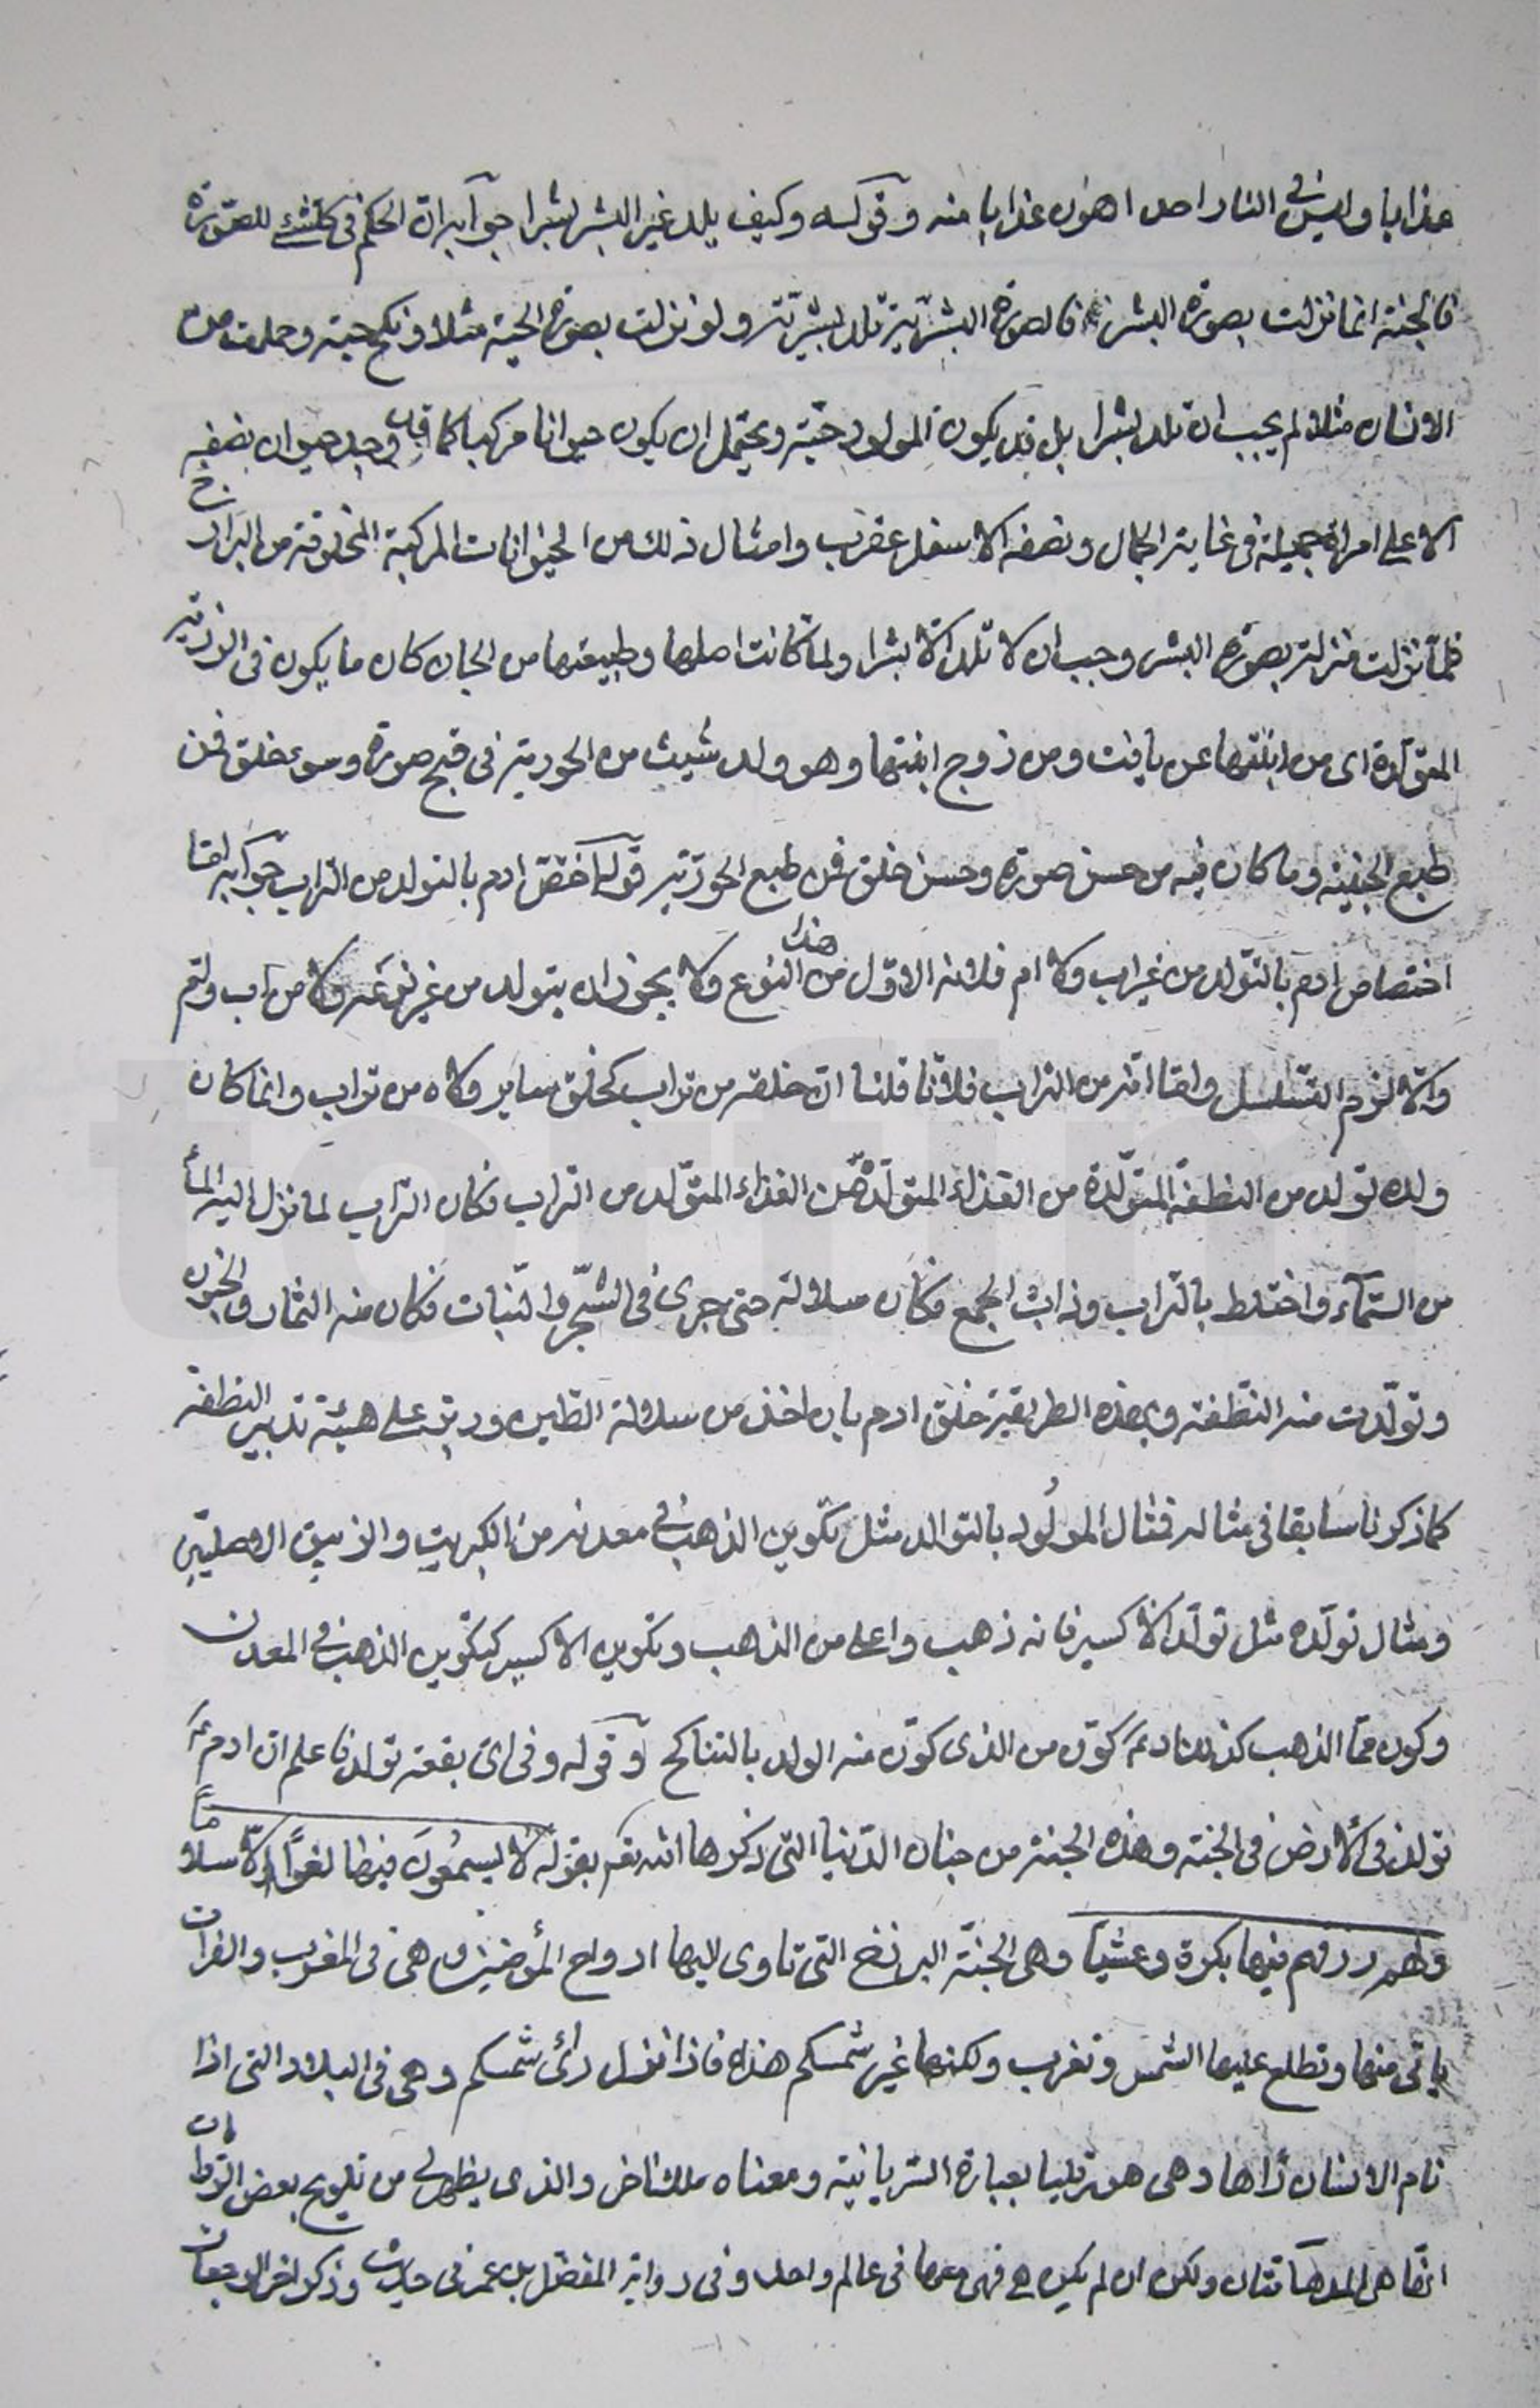 عذابا وليس في النار احد اهون عذابا منه وقوله وكيف يلد غير البشر بشرا جوابه ان الحكم في كلشئ للصورة
فالجنية انما نزلت بصورة البشر فالصورة البشرية تلد بشرية ولو نزلت بصورة الحية مثلا ونكح حية وحملت من
الانسان مثلا لم يجب ان تلد بشرا بل قد يكون المولود حية ويحتمل ان يكون حيوانا مركبا كما قيل وجد حيوان نصفه
الاعلى امراة جميلة في غاية الجمال ونصفه الاسفل عقرب وامثال ذلك من الحيوانات المركبة المخلوقة من البرازخ
فلما نزلت منزلة بصورة البشر وجب ان لا تلد الا بشرا ولما كانت اصلها وطبيعتها من الجان كان ما يكون في الذرية
المتولدة اى من ابنتها عن يافت ومن زوج ابنتها وهو ولد شيث من الحورية في قبح صورة وسوء خلق فمن
طبع الجنية وما كان فيه من حسن صورة وحسن خلق فمن طبع الحورية قوله اختص ادم بالتولد من التراب جوابه اما
اختصاص ادم بالتولد من غير اب ولا ام فلانه الاول من هذا النوع ولا يجوز ان يتولد من غير نوعه ولا من اب وام
والا لزم التسلسل واما انه من التراب فلانا قلنا ان خلقه من تراب كخلق ساير ولده من تراب وانما كان
ولده تولد من النطفة المتولدة من الغذاء المتولدة من الغذاء المتولد من التراب فكان التراب لما نزل اليه الماء
من السماء واختلط بالتراب وذاب الجمع فكان سلالة حتى جرى في الشجر والنبات فكان منه الثمار والحبوب
وتولدت منه النطفة وبهذه الطريقة خلق ادم بان اخذ من سلالة الطين ودبر على هيئة تدبير النطفة
كما ذكرنا سابقا في مثاله فمثال المولود بالتوالد مثل تكوين الذهب في معدنه من الكبريت والزيبق الاصليين
ومثال تولده مثل تولد الاكسير فانه ذهب واعلى من الذهب وتكوين الاكسير كتكوين الذهب في المعدن
وكون مما الذهب كذلك ادم ع كون من الذى كون منه الولد بالتناكح وقوله وفي اى بقعة تولد فاعلم ان ادم ع
تولد في الارض في الجنة وهذه الجنة من جنان الدنيا التى ذكرها الله تع بقوله لا يسمعون فيها لغوا الا سلاما
ولهم رزقهم فيها بكرة وعشيا وهى الجنة البرزخ التى تاوى اليها ارواح المؤمنين وهى في المغرب والفرات
ياتى منها وتطلع عليها الشمس وتغرب ولكنها غير شمسكم هذه فاذا نزل راى شمسكم وهى في البلاد التى اذا
نام الانسان رآها وهى هورقليا بعبارة السريانية ومعناه ملك اخر والذى يظهر لي من تلويح بعض الروايات
انها هى المدهامتان ولكن ان لم يكن هي فهى معها في عالم واحد وفى رواية المفضل بن عمر في حديث وذكر اخر الرجعات